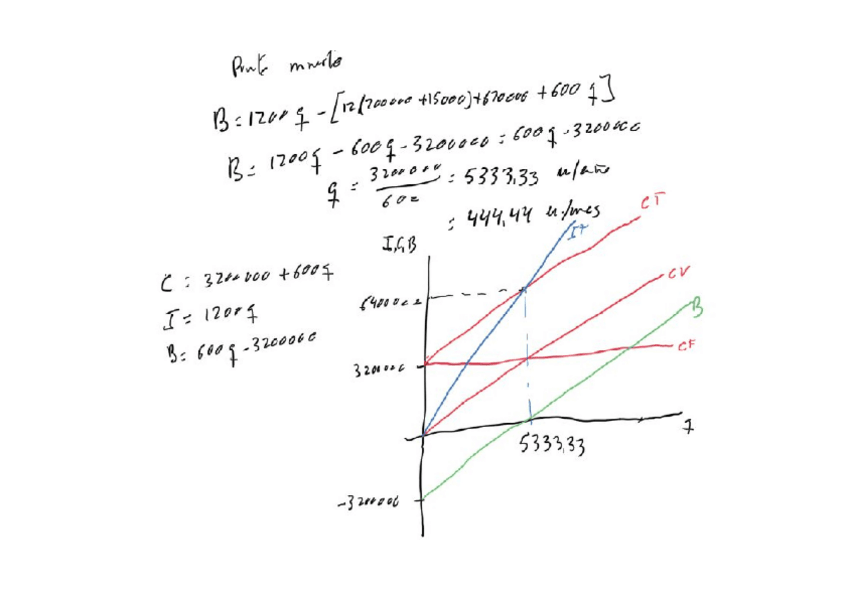 Punto muerto
B = 1200q - [12(200000 + 15000) + 620000 + 600q]
B = 1200q - 600q - 3200000 = 600q - 3200000
q = 3200000 / 600 = 5333,33 u/año
= 444,44 u/mes
I,C,B
IT
CT
C = 3200000 + 600q
I = 1200q
B = 600q - 3200000
6400000
CV
B
3200000
CF
q
5333,33
-3200000